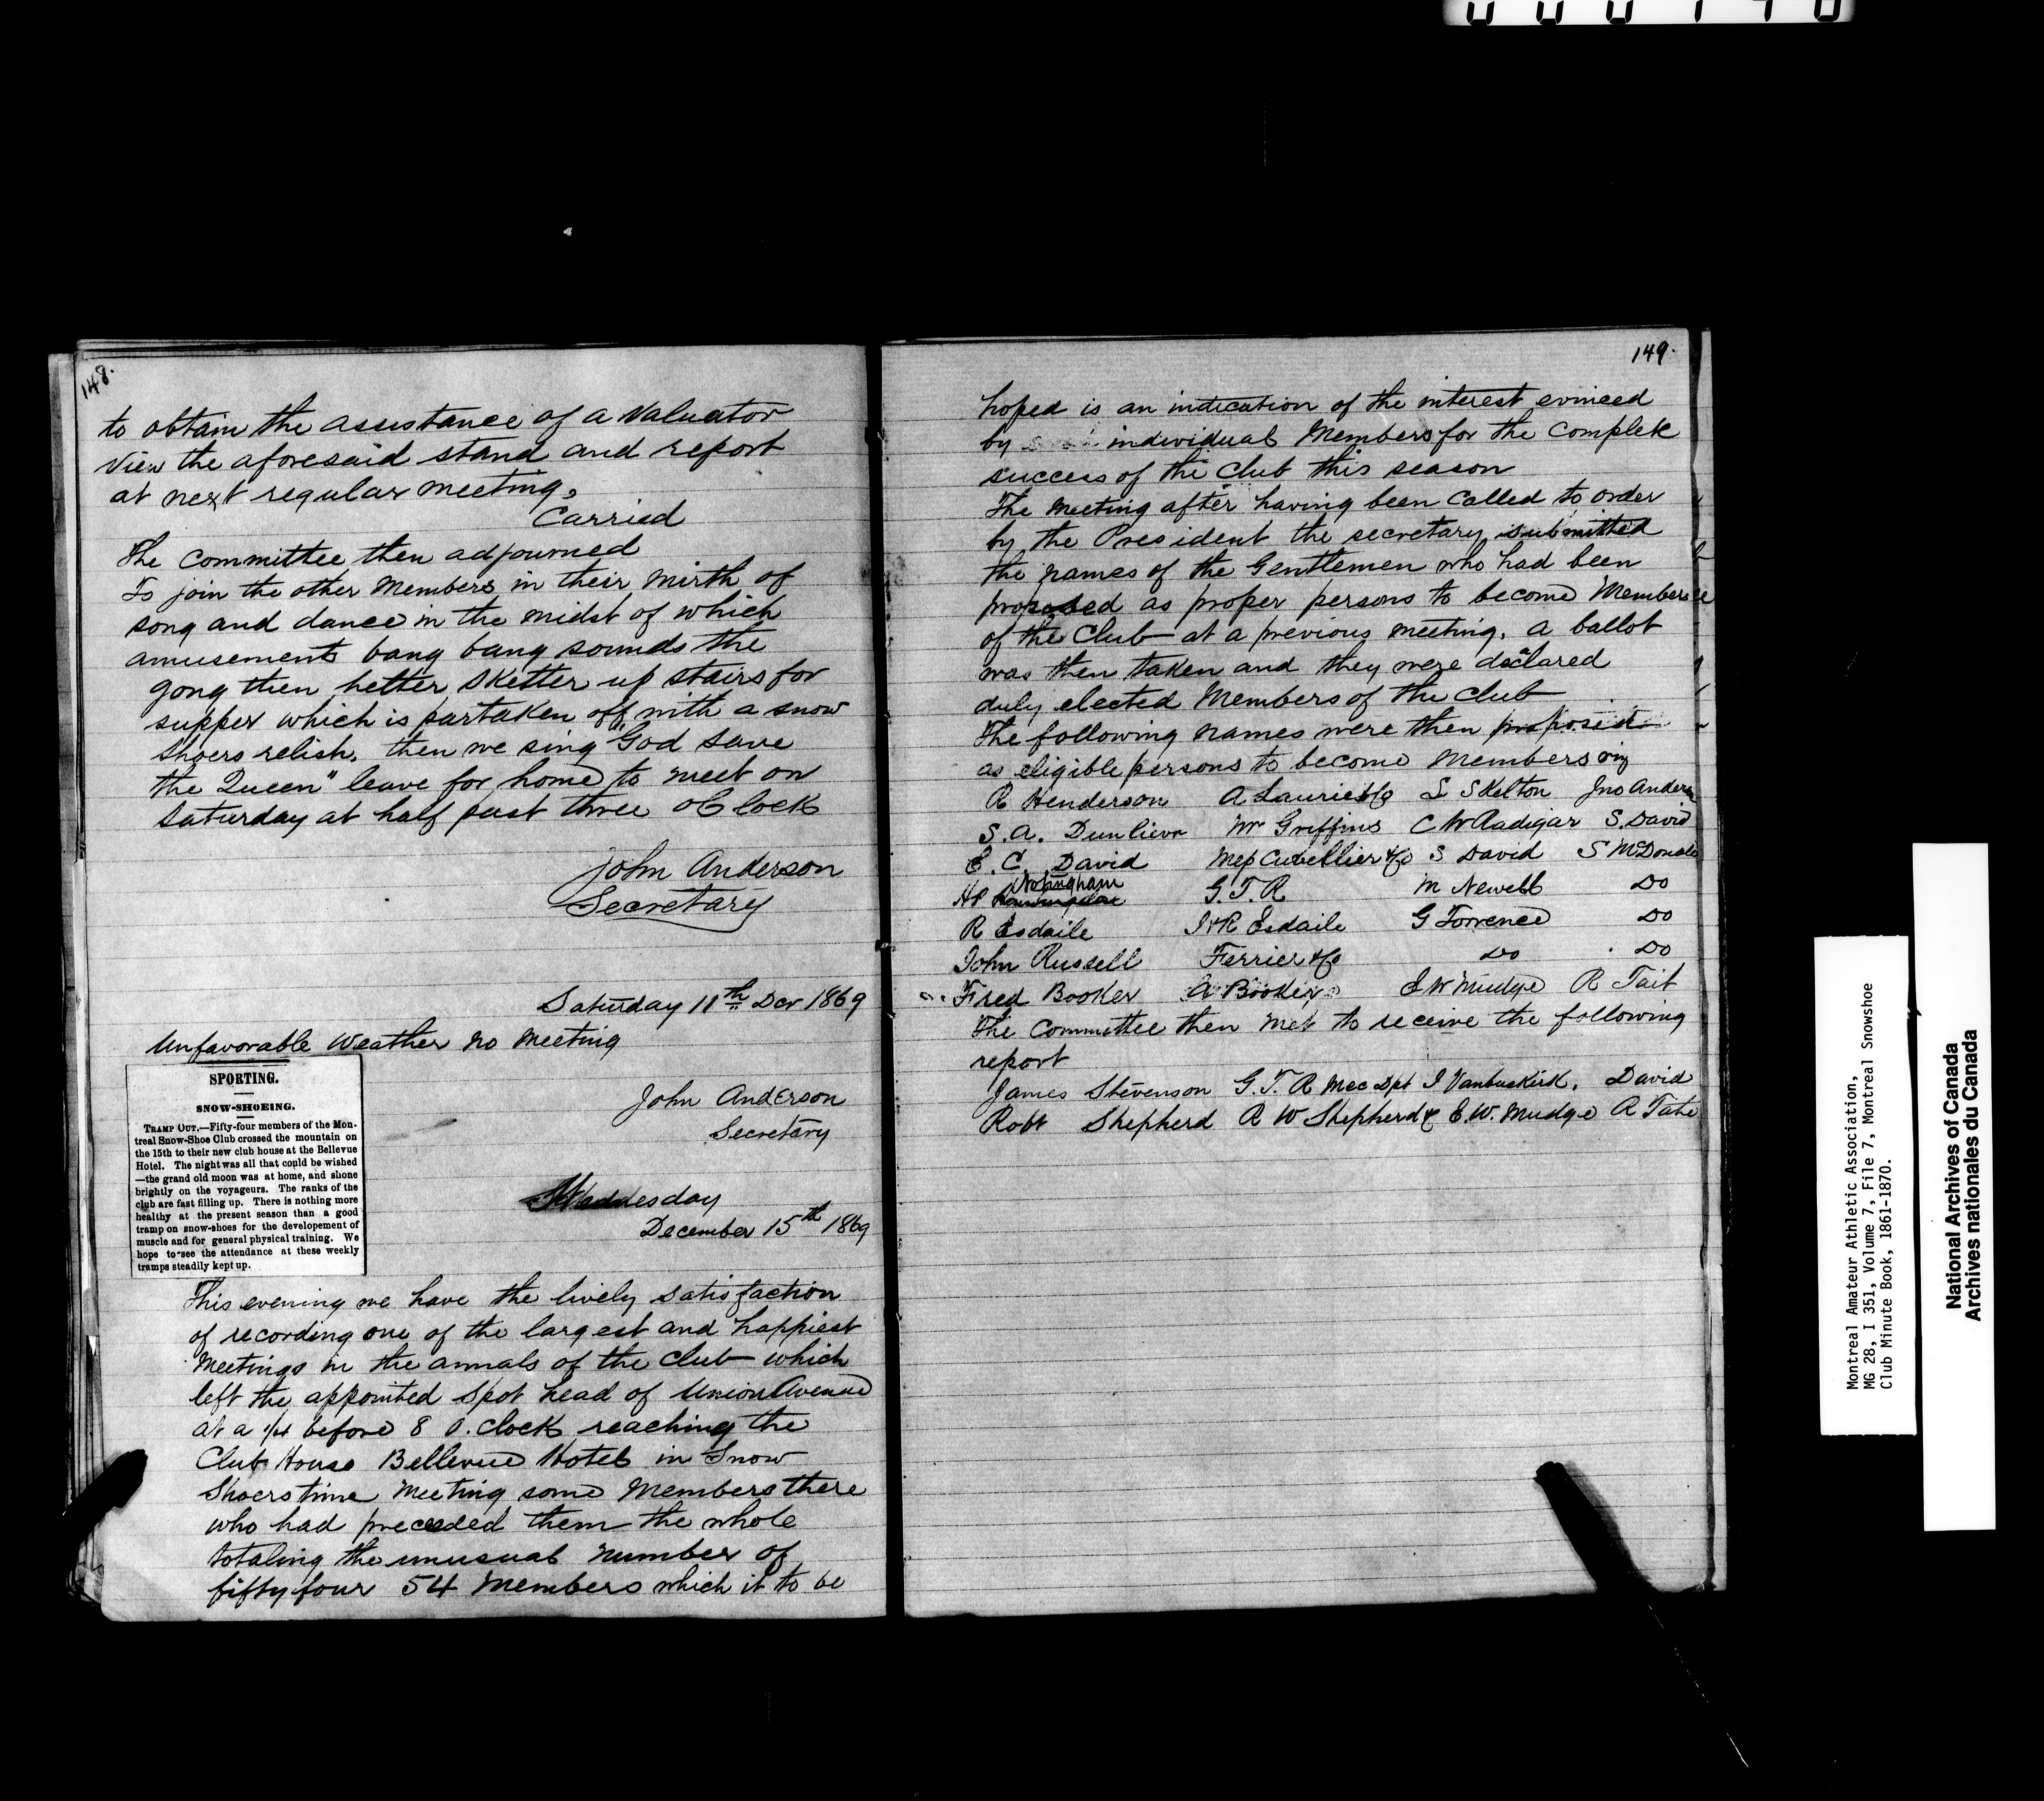 148.
to obtain the assistance of a Valuator
View the aforesaid stand and report
at next regular meeting.
Carried
The Committee then adjourned
To join the other Members in their mirth of
song and dance in the midst of which
amusements bang bang sounds the
gong then helter sketter up stairs for
supper which is partaken off with a snow
shoers relish, then we sing "God save
the Queen" leave for home to meet on
Saturday at half past three oClock
John Anderson
Secretary
Saturday 11th Dec 1869
Unfavorable Weather no Meeting
John Anderson
Secretary
SPORTING.
SNOW-SHOEING.
TRAMP OUT.—Fifty-four members of the Mon-
treal Snow-Shoe Club crossed the mountain on
the 15th to their new club house at the Bellevue
Hotel. The night was all that could be wished
—the grand old moon was at home, and shone
brightly on the voyageurs. The ranks of the
club are fast filling up. There is nothing more
healthy at the present season than a good
tramp on snow-shoes for the developement of
muscle and for general physical training. We
hope to see the attendance at these weekly
tramps steadily kept up.
Weddnesday
December 15th 1869
This evening we have the lively satisfaction
of recording one of the largest and happiest
Meetings in the annals of the Club which
left the appointed spot head of Union Avenue
at a 1/4 before 8 O.Clock reaching the
Club House Bellevue Hotel in Snow
Shoers time Meeting some Members there
who had preceeded them the whole
totaling the unusual number of
fifty four 54 Members which it to be
149.
hoped is an indication of the interest evinced
by individual Members for the complete
success of the Club this season
The Meeting after having been called to order
by the President the secretary submitted
the names of the Gentlemen who had been
proposed as proper persons to become Members
of the Club at a previous meeting. a ballot
was then taken and they were declared
duly elected Members of the Club
The following names were then proposed
as eligible persons to become Members viz
R Henderson A Laurie & Co L Skelton Jno Anderson
S. A. Wm Griffins C W Radigar S. David
E. C. David S David S McDonald
Nottingham G. T. R M Newell Do
R Esdaile J & R Esdaile G Torrence Do
John Russell Ferrier & Co Do Do
Fred Booker A Booker E W Mudge R Tait
The Committee then met to receive the following
report
James Stevenson G. T. R Mec Dpt J Vanbuskirk. David
Robt Shepherd R W Shepherd E. W. Mudge R Tate
Montreal Amateur Athletic Association,
MG 28, I 351, Volume 7, File 7, Montreal Snowshoe
Club Minute Book, 1861-1870.
National Archives of Canada
Archives nationales du Canada